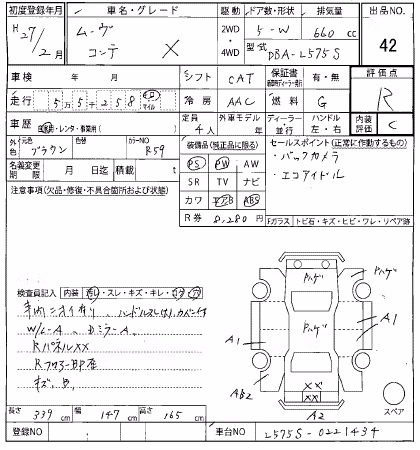 初度登録年月 車名・グレード 駆動 ドア数・形状 排気量 出品NO.
H27/2月 ムーヴ コンテ X 2WD・4WD 5-W 660cc 42
型式 DBA-L575S
車検 年 月 シフト CAT 保証書 有・無 評価点
走行 55258 km マイル 冷房 AAC 燃料 G R
車歴 自家用・レンタ・事業用( ) 定員 4人 外車モデル 年 ディーラー・並行 ハンドル 左・右 内装評価 C
外色 元色 ブラウン 色替 カラーNO R59
装備品(純正品に限る) セールスポイント(正常に作動するもの)
名義変更期限 月 日迄 積載 t
PS PW AW ・バックカメラ
SR TV ナビ ・エコアイドル
カワ エアB ABS
R券 8,280円
注意事項(欠品・修復・不具合箇所および状態)
Fガラス トビ石・キズ・ヒビ・ワレ・リペア跡
検査員記入 内装 汚レ・スレ・キズ・キレ・コゲ・アナ
W/L-A、DミラーA、
RパネルXX
Rフロアー
キズ、凹、
Pハゲ Pハゲ
Pハゲ
A1 A1
AB2
XX
A2
スペア
長さ 339cm 幅 147cm 高さ 165cm
登録NO 車台NO L575S-0221434